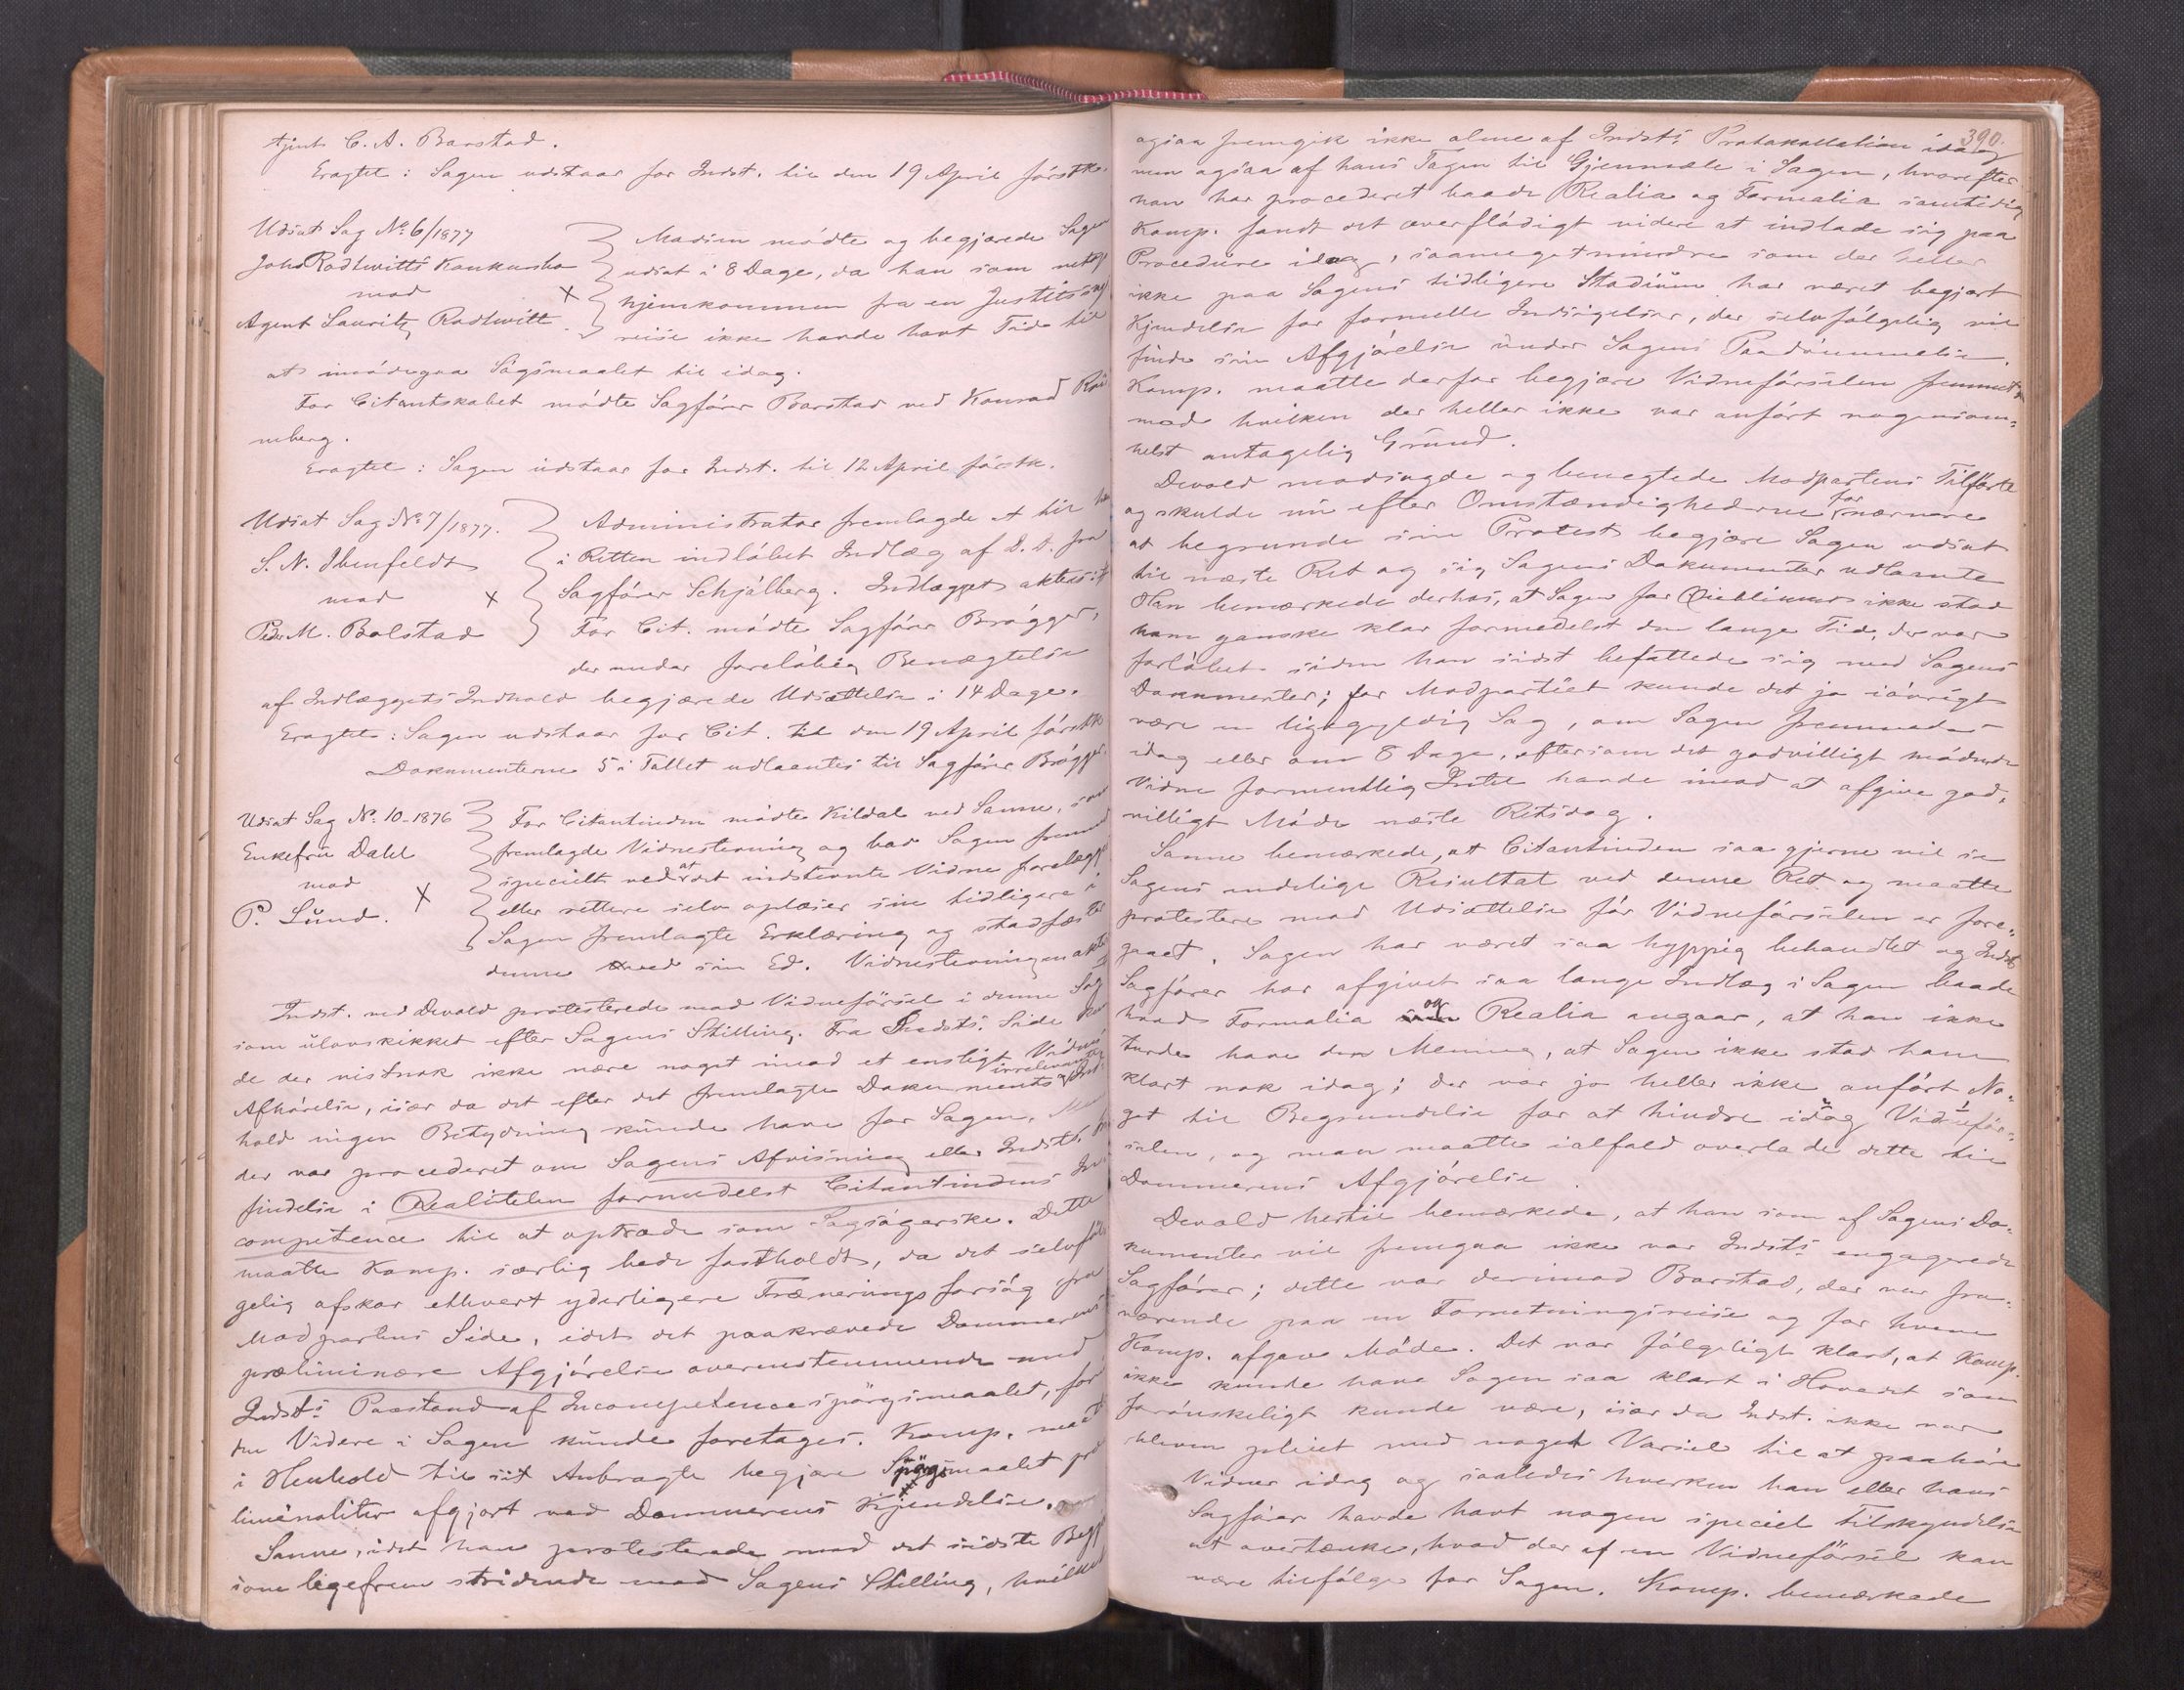 tjente C. A. Barstad.
Eragtet: Sagen udstaar for Indst. til den 19 April førstk.
Udsat Sag No 6/1877
Johs Rodtwitts Konkursbo
mod
Agent Lauritz Rodtwitt.
Madsen mødte og begjærede Sagen
udsat i 8 Dage, da han som netop
hjemkommen fra en Justits
reise ikke havde havt Tid til
at imødegaa Søgsmaalet til idag.
For Citantskabet mødte Sagfører Barstad ved Konrad
neberg.
Eragtet: Sagen udstaar for Indst. til 12 April førstk.
Udsat Sag No 7/1877.
S. N. Ibenfeldt
mod
Peder M. Bolstad
Administrator fremlagde et til
i Retten indløbet Indlæg af D. D. fra
Sagfører Schjølberg. Indlægget
For Cit. mødte Sagfører Brøgger,
der under foreløbig Benægtelse
af Indlæggets Indhold begjærede Udsættelse i 14 Dage.
Eragtet: Sagen udstaar for Cit. til den 19 April førstk
Dokumenterne 5 i Tallet udlaantes til Sagfører Brøgger.
Udsat Sag No: 10-1876
Enkefru Dahl
mod
P. Lund.
For Citantinden mødte Kildal ved Sanne, som
fremlagde Vidnestevning og bad Sagen fremmed
specielt ved at det indstevnte Vidne forelægges
eller rettere selv oplæser sin tidligere i
Sagen fremlagte Erklæring og stadfæster
denne med sin Ed. Vidnestevningen
Indst. ved Devold protesterede mod Vidneførsel i denne Sag
som ulovskikket efter Sagens Stilling. Fra Indsts. Side
de der vistnok ikke være noget imod et ensligt Vidnes
Afhørelse, især da det efter det fremlagte Dokuments irrelevante Ind-
hold ingen Betydning kunde have for Sagen. Men
der var procederet om Sagens Afvisning eller Indsts.
findelse i Realiteten formedelst Citantindens In-
competence til at optræde som Sagsøgerske. Dette
maatte Komp. særlig bede fastholdt, da det selvføl
gelig afskar ethvert yderligere Trænerings forsøg fra
Modpartens Side, idet det paakrævede Dommerens
præliminære Afgjørelse overensstemmende med
Indsts Paastand af Incompetencespørgsmaalet, før
den Videre i Sagen kunde foretages. Komp. maatte
i Henhold til sit Anbragte begjære Spørgsmaalet præ
liminaliter afgjort ved Dommerens Kjendelse.
Sanne, idet han protesterede mod det sidste Begj
som ligefrem stridende mod Sagens Stilling, hvilket
390.
ogsaa fremgik ikke alene af Indsts Protokollation idag
men ogsaa af hans Tagen til Gjenmæle i Sagen, hvorefter
han har procederet baade Realia og Formalia samtidig
Komp. fandt det overflødigt videre at indlade sig paa
Procedure idag, saameget mindre som der heller
ikke paa Sagens tidligere Stadium har været begjært
Kjendelse for formelle Indsigelser, der selvfølgelig vil
finde sin Afgjørelse under Sagens Paadømmelse.
Komp. maatte derfor begjære Vidneførselen fremmet
mod hvilken der heller ikke var anført nogensom-
helst antagelig Grund.
Devold modsagde og benegtede Modpartens Tilførte
og skulde nu efter Omstændighederne for nærmere
at begrunde sin Protest begjære Sagen udsat
til næste Ret og sig Sagens Dokumenter udlaante
Han bemærkede derhos, at Sagen for Øieblikket ikke stod
ham ganske klar formedelst den lange Tid, der var
forløbet siden han sidst befattede sig med Sagens
Dokumenter; for Modpartiet kunde det jo iøvrigt
være en ligegyldig Sag, om Sagen fremmedes
idag eller om 8 Dage, eftersom det godvilligt mødende
Vidne formentlig Intet havde imod at afgive god-
villigt Møde næste Retsdag.
Sanne bemærkede, at Citantinden saa gjerne vil se
Sagens endelige Resultat ved denne Ret og maatte
protestere mod Udsættelse før Vidneførselen er fore-
gaaet. Sagen har været saa hyppig behandlet og Indsts
Sagfører har afgivet saa lange Indlæg i Sagen baade
hvad Formalia og Realia angaar, at han ikke
turde have den Mening, at Sagen ikke stod ham
klart nok idag; der var jo heller ikke anført No-
get til Begrundelse for at hindre idag Vidnefør-
selen, og man maatte ialfald overlade dette til
Dommerens Afgjørelse.
Devold hertil bemærkede, at han som af Sagens Do-
kumenter vil fremgaa ikke var Indsts engagerede
Sagfører; dette var derimod Barstad, der var fra-
værende paa en Forretningsreise og for hvem
Komp. afgav Møde. Det var følgeligt klart, at Komp.
ikke kunde have Sagen saa klart i Hovedet som
forønskeligt kunde være, især da Indst. ikke var
bleven given med noget Varsel til at paahøre
Vidner idag og saaledes hverken han eller hans
Sagfører havde havt nogen speciel Tilskyndelse
at overtænke, hvad der af en Vidneførsel kan
være tilfølge for Sagen. Komp. bemærkede